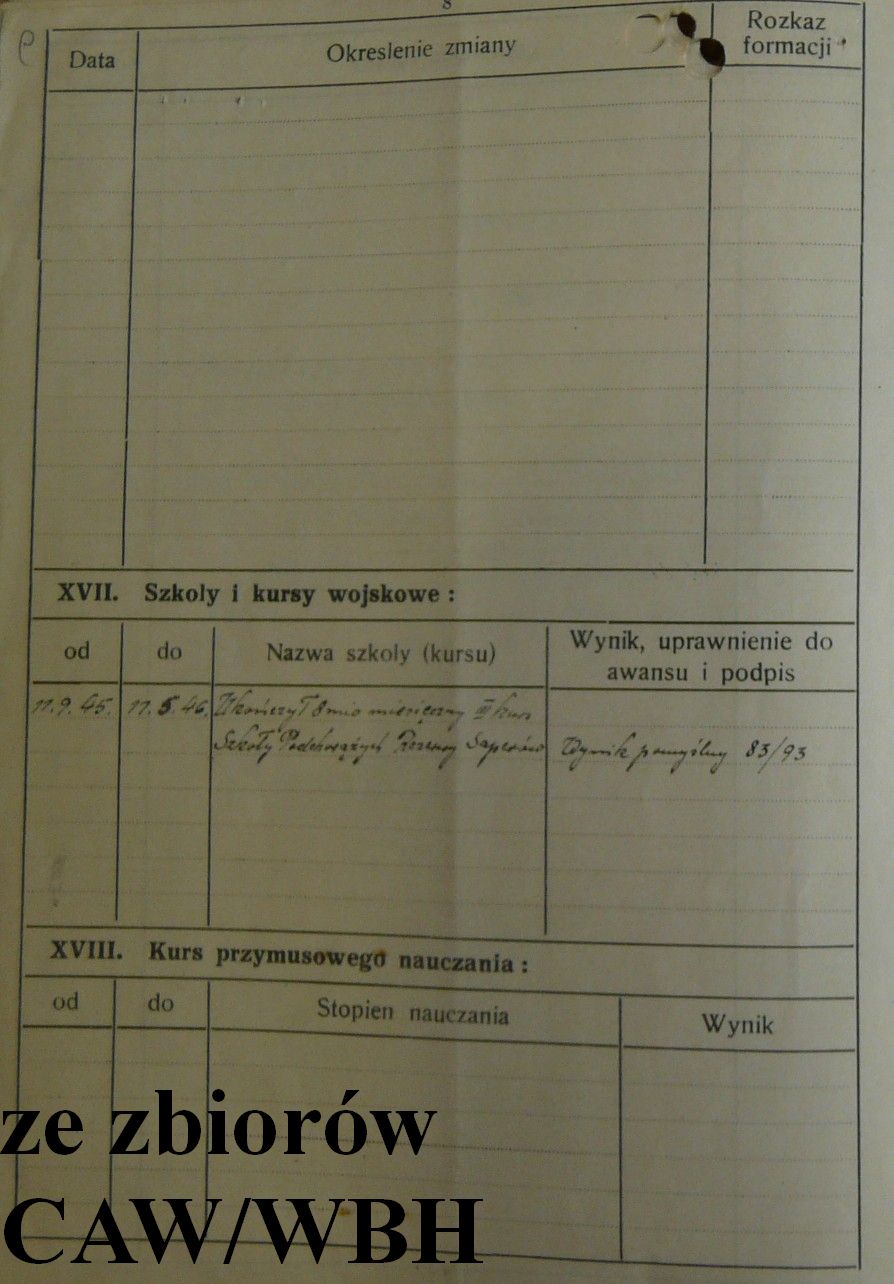 8
Data Okreslenie zmiany Rozkaz formacji
XVII. Szkoly i kursy wojskowe :
od do Nazwa szkoly (kursu) Wynik, uprawnienie do awansu i podpis
11.9.45. 11.5.46. Ukończył 8mio miesięczny III kurs
Szkoły Podchorążych Rezerwy Saperów Wynik pomyślny 83/93
XVIII. Kurs przymusowego nauczania :
od do Stopien nauczania Wynik
ze zbiorów
CAW/WBH